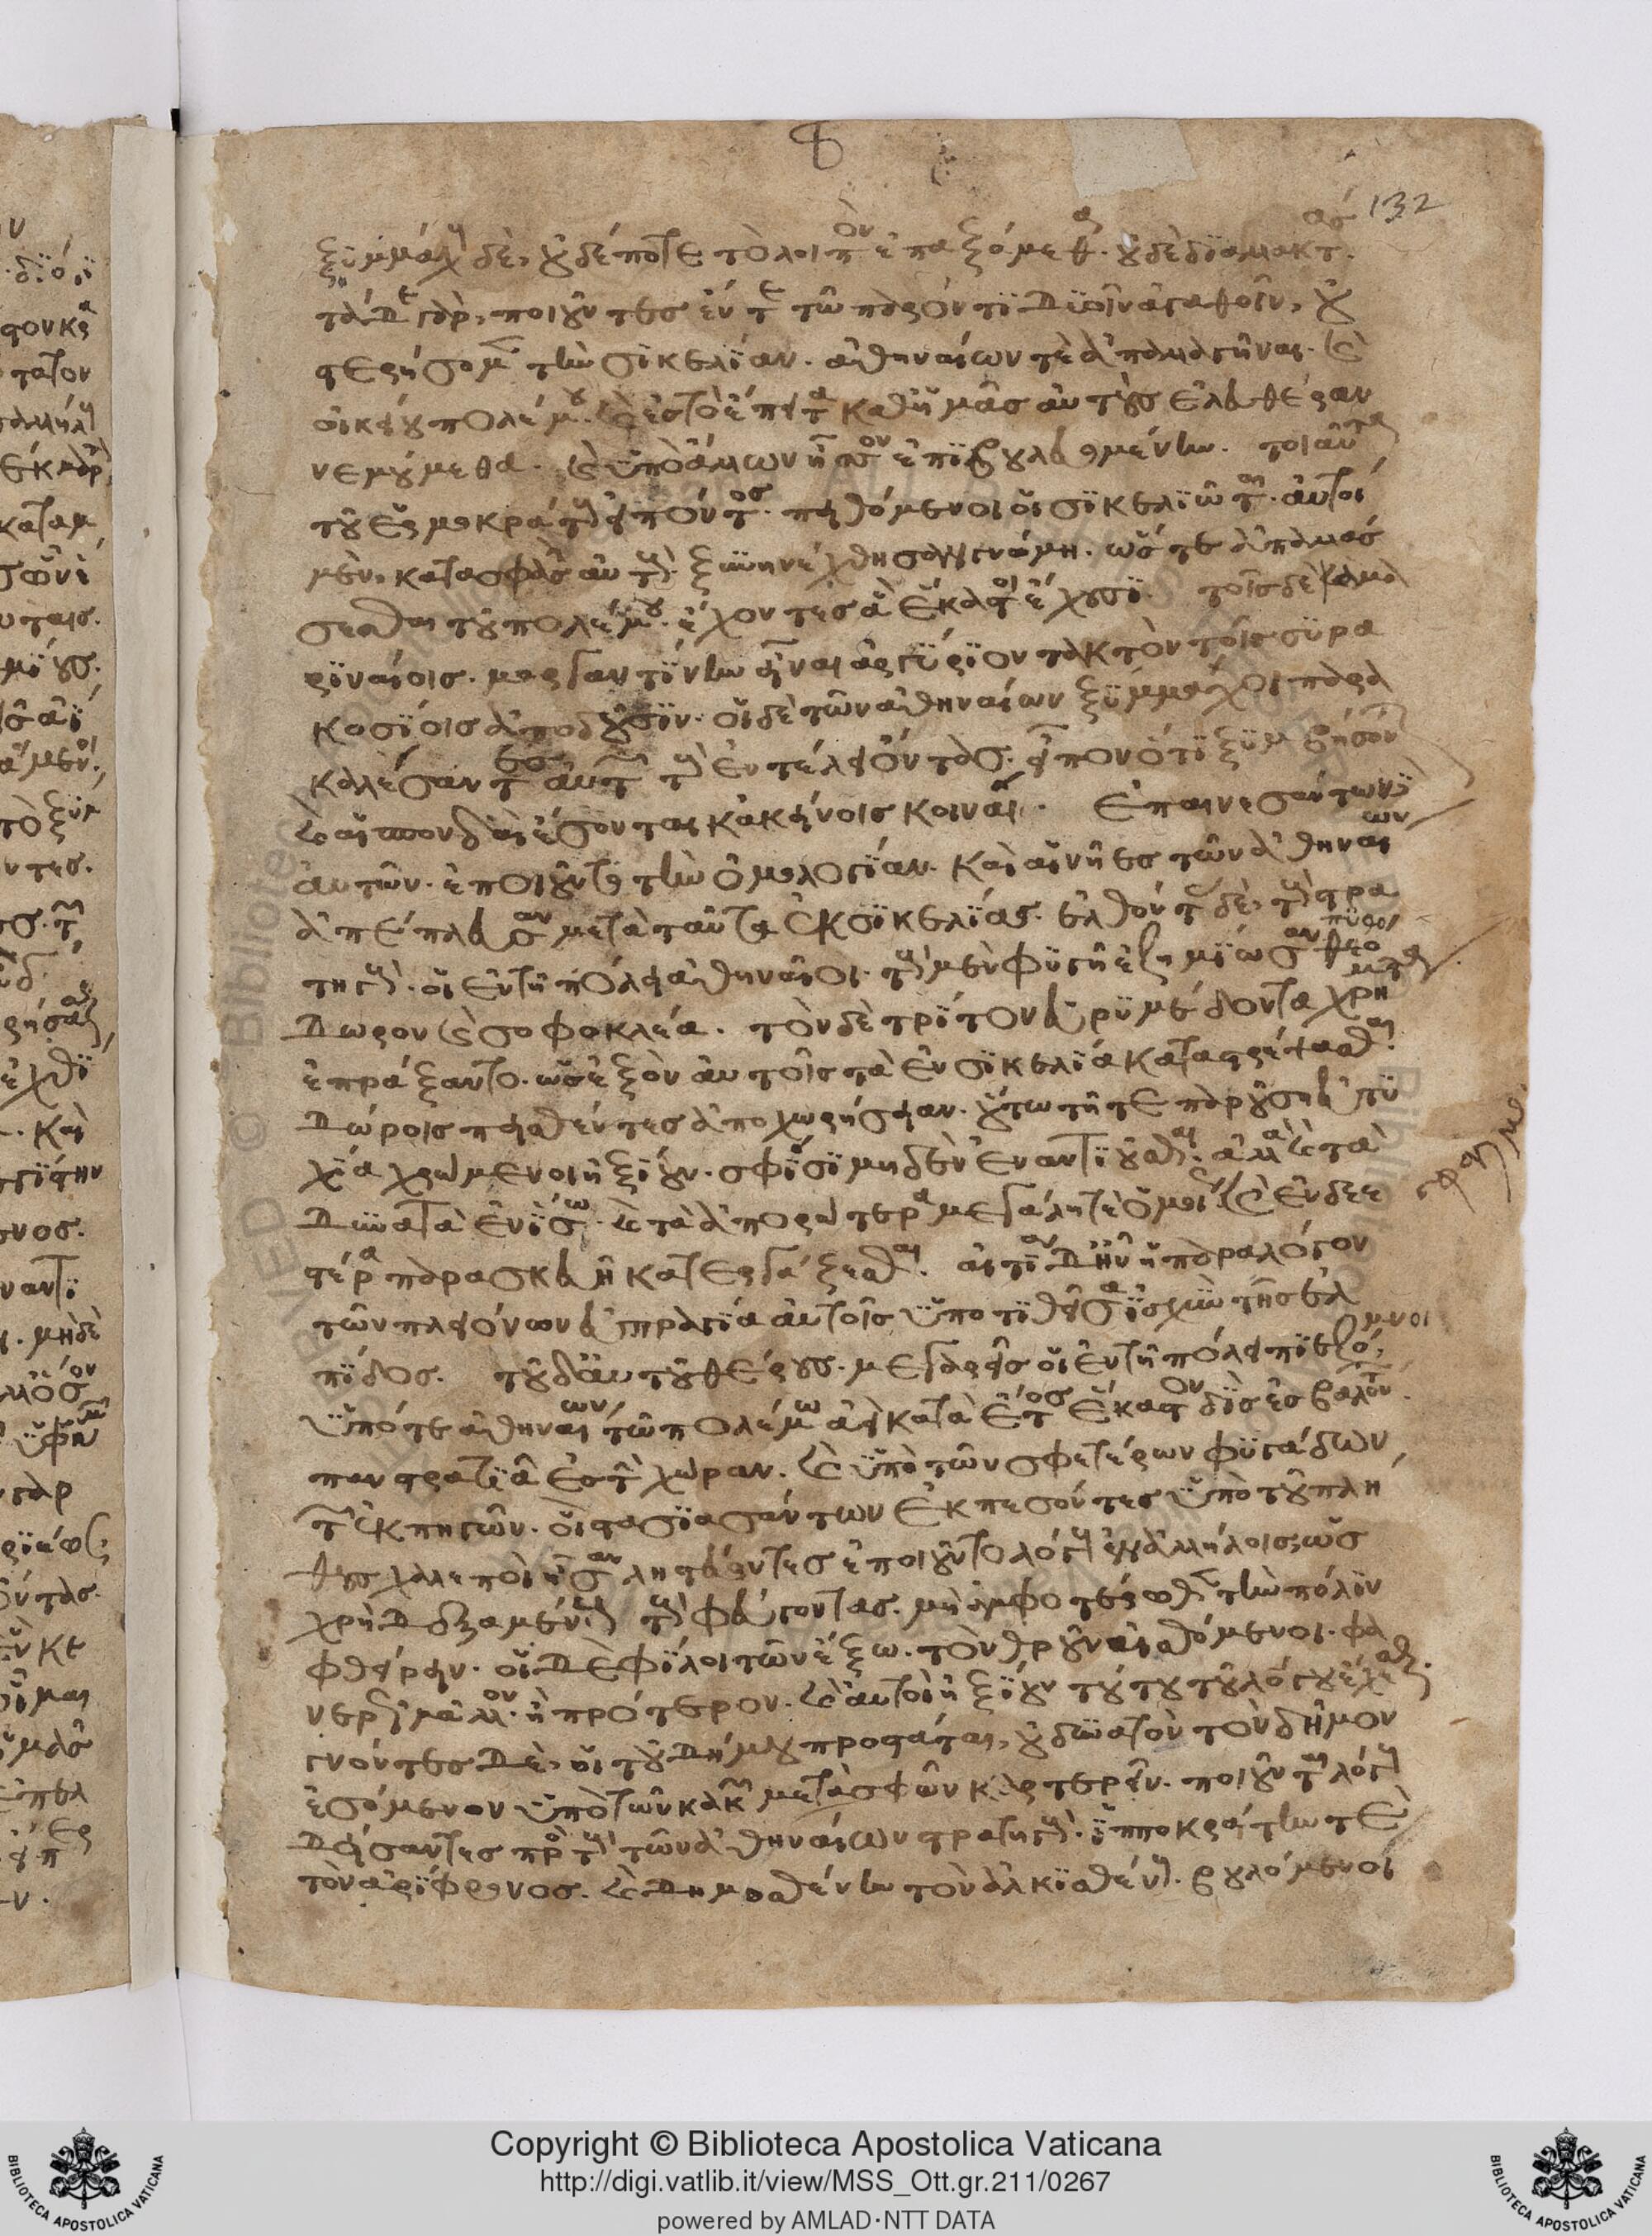 132
ξυμμάχους δὲ, οὐδέποτε τὸ λοιπὸν ἐπαξόμεθα. οὐδὲ διαλλακτάς.
τάδε γὰρ, ποιοῦντες ἔν τε τῶ παρόντι δυοῖν ἀγαθοῖν, οὐ
στερήσομεν τὴν σικελίαν. ἀθηναίων τὲ ἀπαλλαγῆναι. καὶ
οἰκείου πολέμου. καὶ ἐς τὸ ἔπειτα καθ' ἡμᾶς αὐτοὺς ἐλευθέραν
νεμούμεθα. καὶ ὑπὸ ἄλλων ἧσσον ἐπιβουλευομένην. τοιαῦτα
τοῦ ἑρμοκράτους εἰπόντος. πειθόμενοι οἱ σικελιῶται. αὐτοὶ
μὲν, κατὰ σφᾶς αὐτοὺς ξυνηνέχθησαν γνώμη. ὥστε ἀπαλλάσ
σεσθαι τοῦ πολέμου. ἔχοντες ἃ ἕκαστοι ἔχουσι. τοῖς δὲ καμα
ριναίοις. μοργαντίνην εἶναι ἀργύριον τακτὸν τοῖς συρα
κοσίοις ἀποδοῦσιν. οἱ δὲ τῶν ἀθηναίων ξύμμαχοι παρα
καλέσαντες αὐτῶν τοὺς ἐν τέλει ὄντας. εἶπον ὅτι ξυμβήσον
καὶ αἱ σπονδαὶ ἔσονται κἀκείνοις κοιναί. ἐπαινεσάντων
αὐτῶν. ἐποιοῦντο τὴν ὁμολογίαν. καὶ αἱ νῆες τῶν ἀθηναίων
ἀπέπλευσαν μετὰ ταῦτα ἐκ σικελίας. ἐλθόντας δὲ, τοὺς στρα
τηγοὺς. οἱ ἐν τῆ πόλει ἀθηναῖοι. τοὺς μὲν φυγῆ ἐζημίωσαν πυθό
δωρον καὶ σοφοκλέα. τὸν δὲ τρίτον εὐρυμέδοντα χρήματα
ἐπράξαντο. ὡς ἐξὸν αὐτοῖς τὰ ἐν σικελία καταστρέψασθαι.
δώροις πεισθέντες ἀποχωρήσειαν. οὕτω τῆ τε παρούση εὐτυ
χία χρώμενοι ἠξίουν. σφίσι μηδὲν ἐναντιοῦσθαι. ἀλλὰ καὶ τὰ
δυνατὰ ἐν ἴσω. καὶ τὰ ἀπορώτερα μεγάλη τὲ ὁμοίως καὶ ἐνδεε
στέρα παρασκευῆ κατεργάζεσθαι. αἰτία δ' ἦν ἡ παραλόγον
τῶν πλειόνων εὐπραγία αὐτοῖς ὑποτιθεῖσα ἰσχὺν τῆς ἐλ
πίδος. τοῦ δ' αὐτοῦ θέρους. μεγαρεῖς οἱ ἐν τῆ πόλει πιεζόμενοι
ὑπό τε ἀθηναίων τῶ πολέμω ἀεὶ κατὰ ἔτος ἕκαστον δὶς ἐσβαλόντων
πανστρατιᾶ ἐς τὴν χώραν. καὶ ὑπὸ τῶν σφετέρων φυγάδων
τῶν ἐκ πηγῶν. οἳ στασιασάντων ἐκπεσόντες ὑπὸ τοῦ πλή
θους χαλεποὶ ἦσαν ληστεύοντες ἐποιοῦντο λόγους ἐν ἀλλήλοις, ὡς
χρὴ δεξαμένους τοὺς φεύγοντας. μὴ ἀμφοτέρωθεν τὴν πόλιν
φθείρειν. οἱ δὲ φίλοι τῶν ἔξω. τὸν θροῦν αἰσθόμενοι. φα
νερῶς μᾶλλον. ἢ πρότερον. καὶ αὐτοὶ ἠξίουν τούτου τοῦ λόγου ἔχεσθαι.
γνόντες δὲ, οἱ τοῦ δήμου προστάται, οὐ δυνατὸν τὸν δῆμον
ἐσόμενον ὑπὸ τῶν κακῶν μετὰ σφῶν καρτερεῖν. ποιοῦνται λόγους
δείσαντες πρὸς τοὺς τῶν ἀθηναίων στρατηγοὺς. ἱπποκράτην τὲ
τὸν ἀρίφρονος. καὶ δημοσθένην τὸν ἀλκισθένους. βουλόμενοι
Copyright © Biblioteca Apostolica Vaticana
http://digi.vatlib.it/view/MSS_Ott.gr.211/0267
powered by AMLAD·NTT DATA
BIBLIOTECA APOSTOLICA VATICANA
BIBLIOTECA APOSTOLICA VATICANA